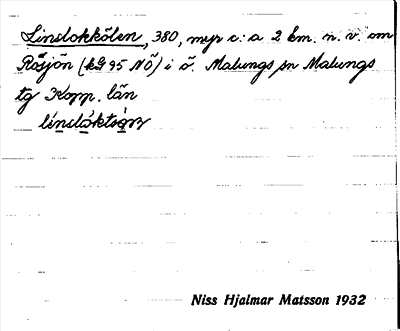 Linslokkölen, 380, myr c:a 2 km. n. v. om
Rösjön (kG 95 NÖ) i ö. Malungs sn Malungs
tg Kopp. län
Niss Hjalmar Matsson 1932